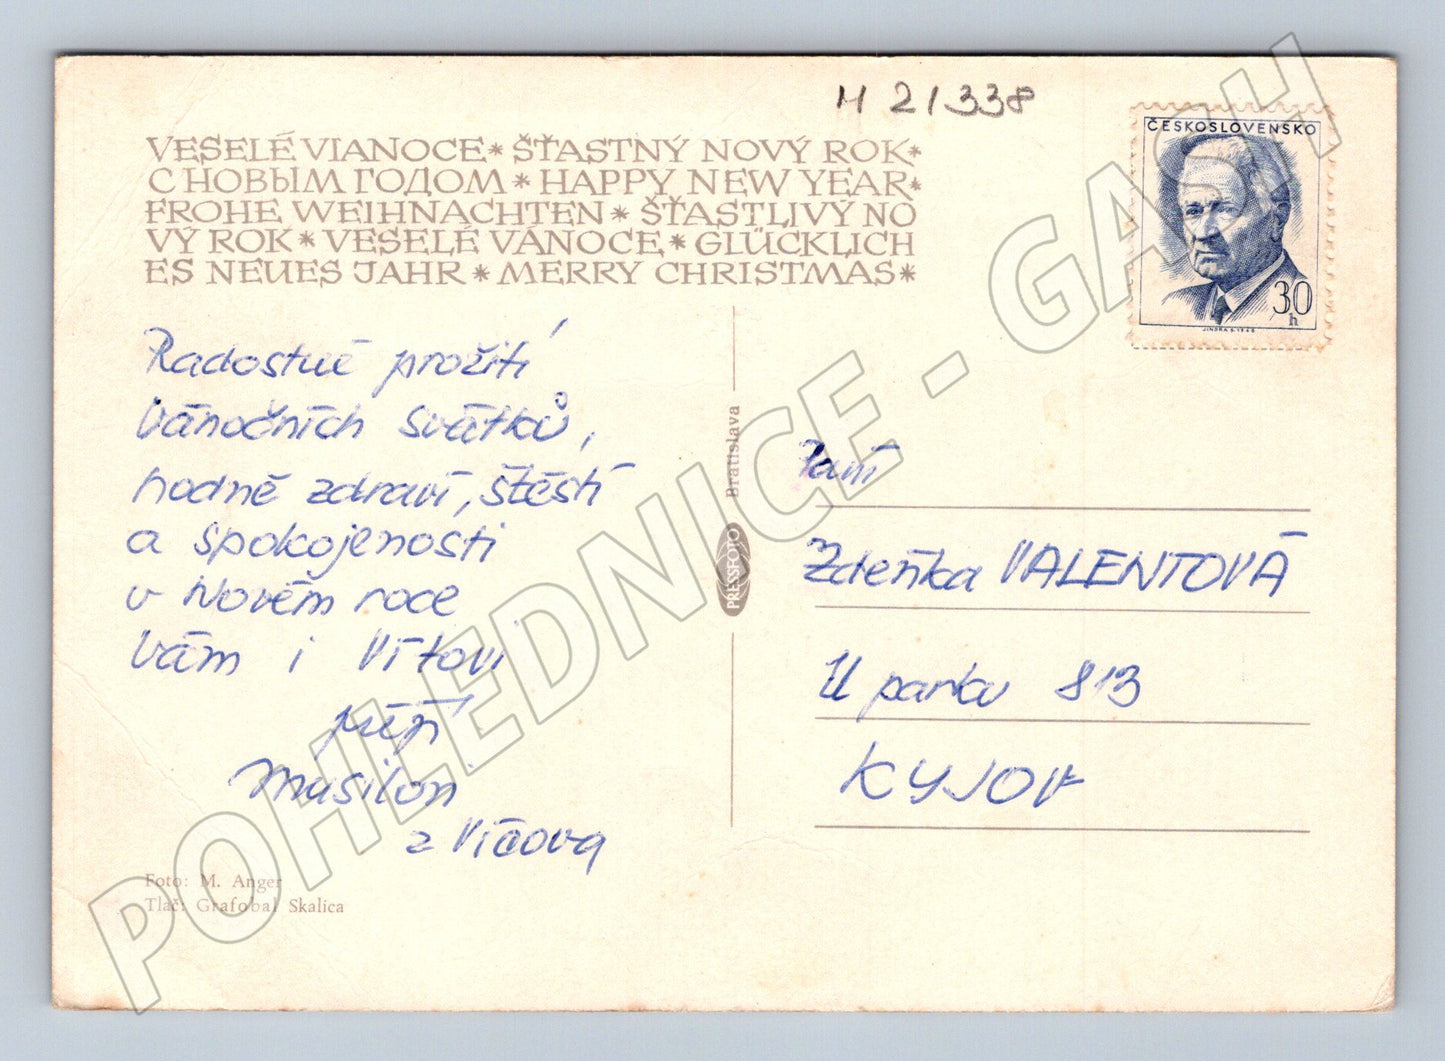 H 21338
VESELÉ VIANOCE * ŠŤASTNÝ NOVÝ ROK *
С НОВЫМ ГОДОМ * HAPPY NEW YEAR *
FROHE WEIHNACHTEN * ŠŤASTLIVÝ NO
VÝ ROK * VESELÉ VÁNOCE * GLÜCKLICH
ES NEUES JAHR * MERRY CHRISTMAS *
ČESKOSLOVENSKO
30
h
JINDRA S.1968
Radostné prožití
Vánočních svátků,
hodně zdraví, štěstí
a spokojenosti
v Novém roce
Vám i Vítovi
přejí
Musilovi
z Vícova
Foto: M. Anger
Tlač: Grafobal Skalica
PRESSFOTO Bratislava
Paní
Zdeňka VALENTOVÁ
U parku 813
KYJOV
POHLEDNICE - GASH